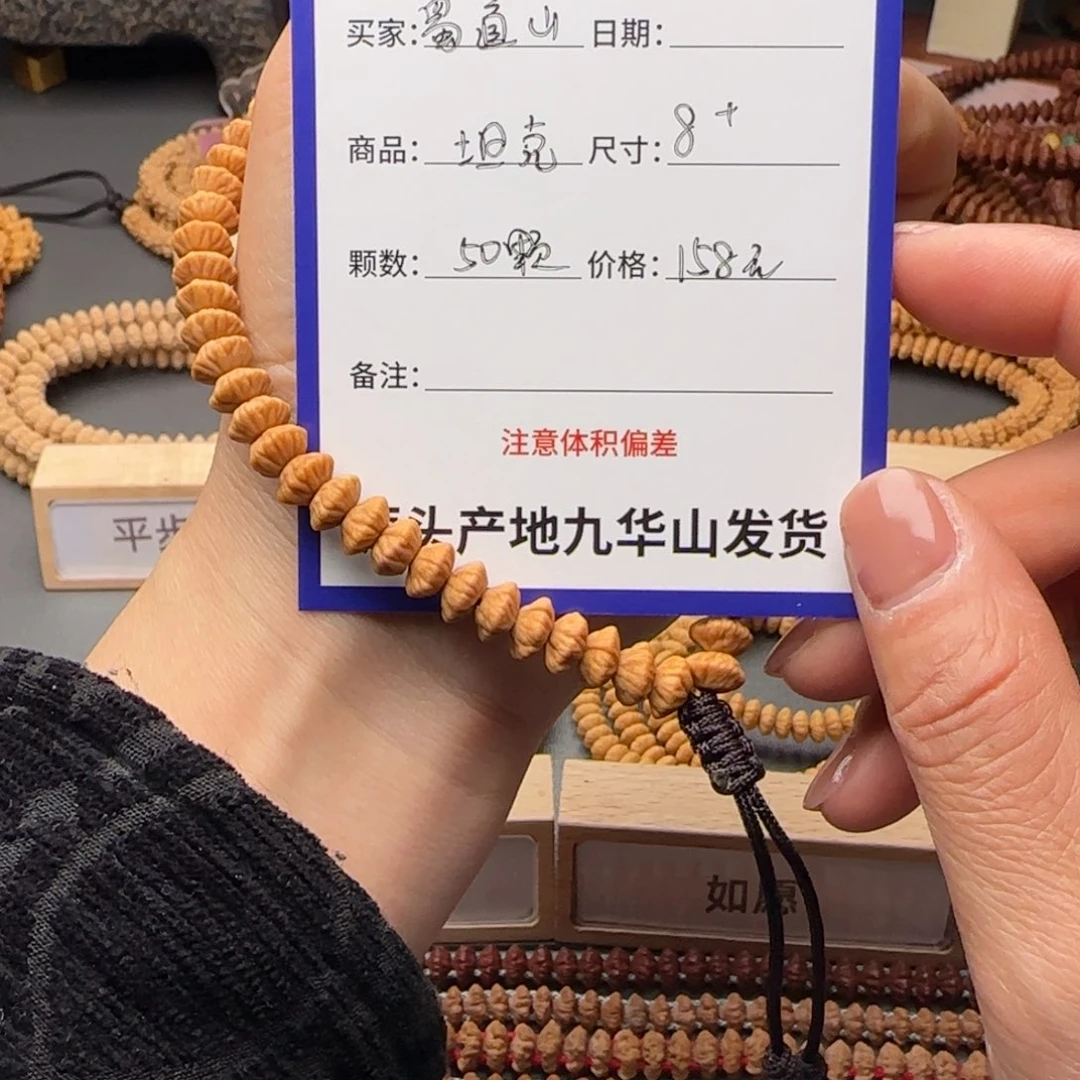 买家：蜀道山 日期：
商品：坦克 尺寸：8+
颗数：50颗 价格：158元
备注：
注意体积偏差
头产地九华山发货
平步
如愿